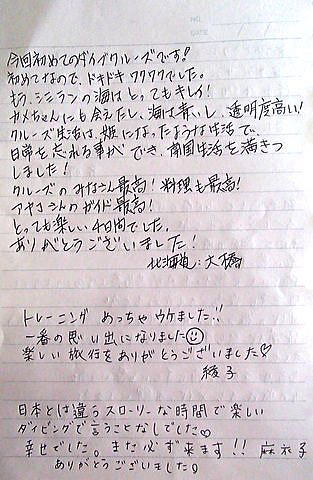 今回初めてのダイブクルーズです!
初めてなので、ドキドキワクワクでした。
もう、シミランの海はとってもキレイ!
カメちゃんにも会えたし、海は青いし、透明度高い!
クルーズ生活は、姫になったような生活で、
日常を忘れる事ができ、南国生活を満きつ
しました!
クルーズのみなさん最高! 料理も最高!
アヤコさんのガイド最高!
とっても楽しい4日間でした。
ありがとうございました!
北海道:大橋
トレーニング めっちゃ ウケました!!
一番の思い出になりました☺
楽しい旅行をありがとうございました♡
綾子
日本とは違うスローリーな時間で楽しい
ダイビングで言うことなしでした♡
幸せでした。また必ず来ます!! 麻衣子
ありがとうございました。